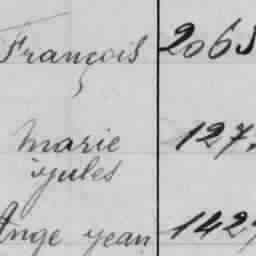 François 2065
marie 127
yules
Ange yean 142